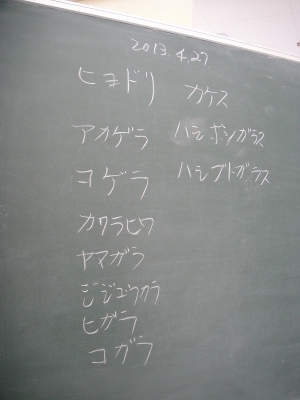 2013.4.27
ヒヨドリ
アカゲラ
コゲラ
カワラヒワ
ヤマガラ
シジュウカラ
ヒガラ
コガラ
カケス
ハシボソガラス
ハシブトガラス